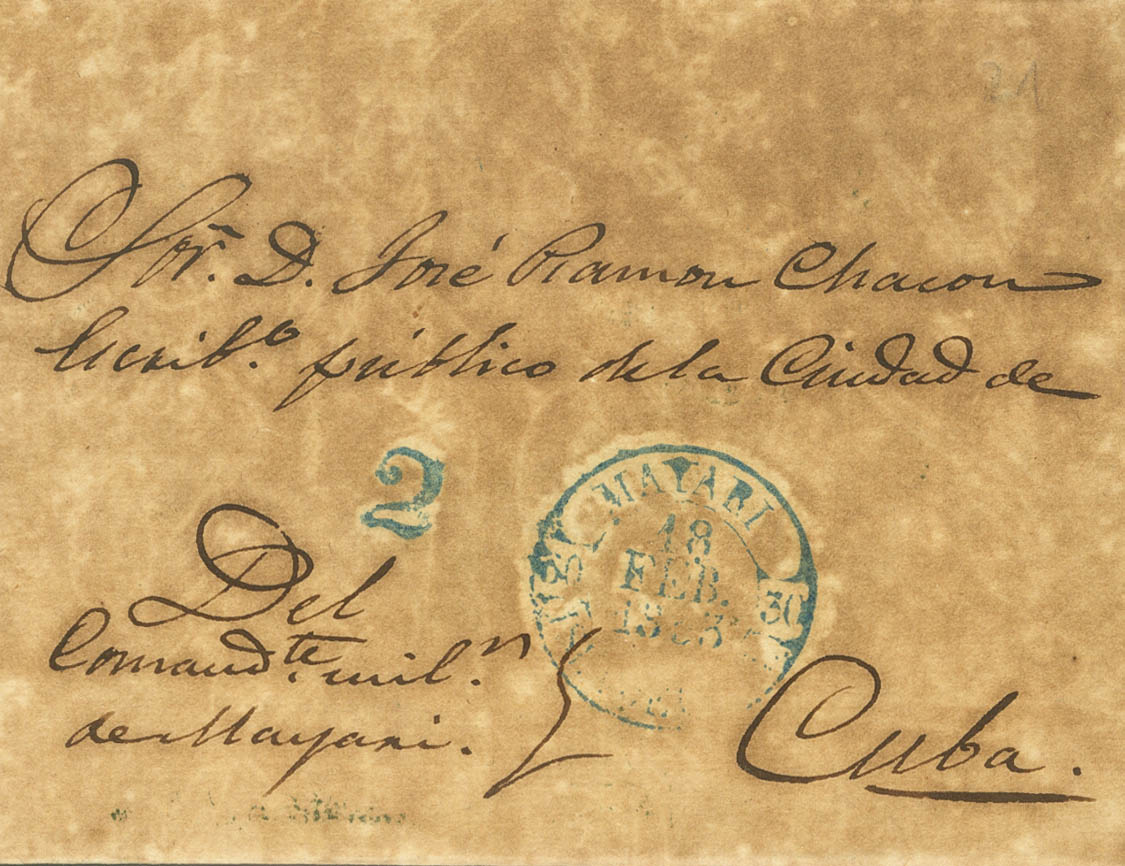 21
Sor. D. José Ramon Chacon
Escrib.o público de la Ciudad de
2
MAYARI
18
FEB.
30 30
Del
Comand.te mil.n
de Mayari.
Cuba.